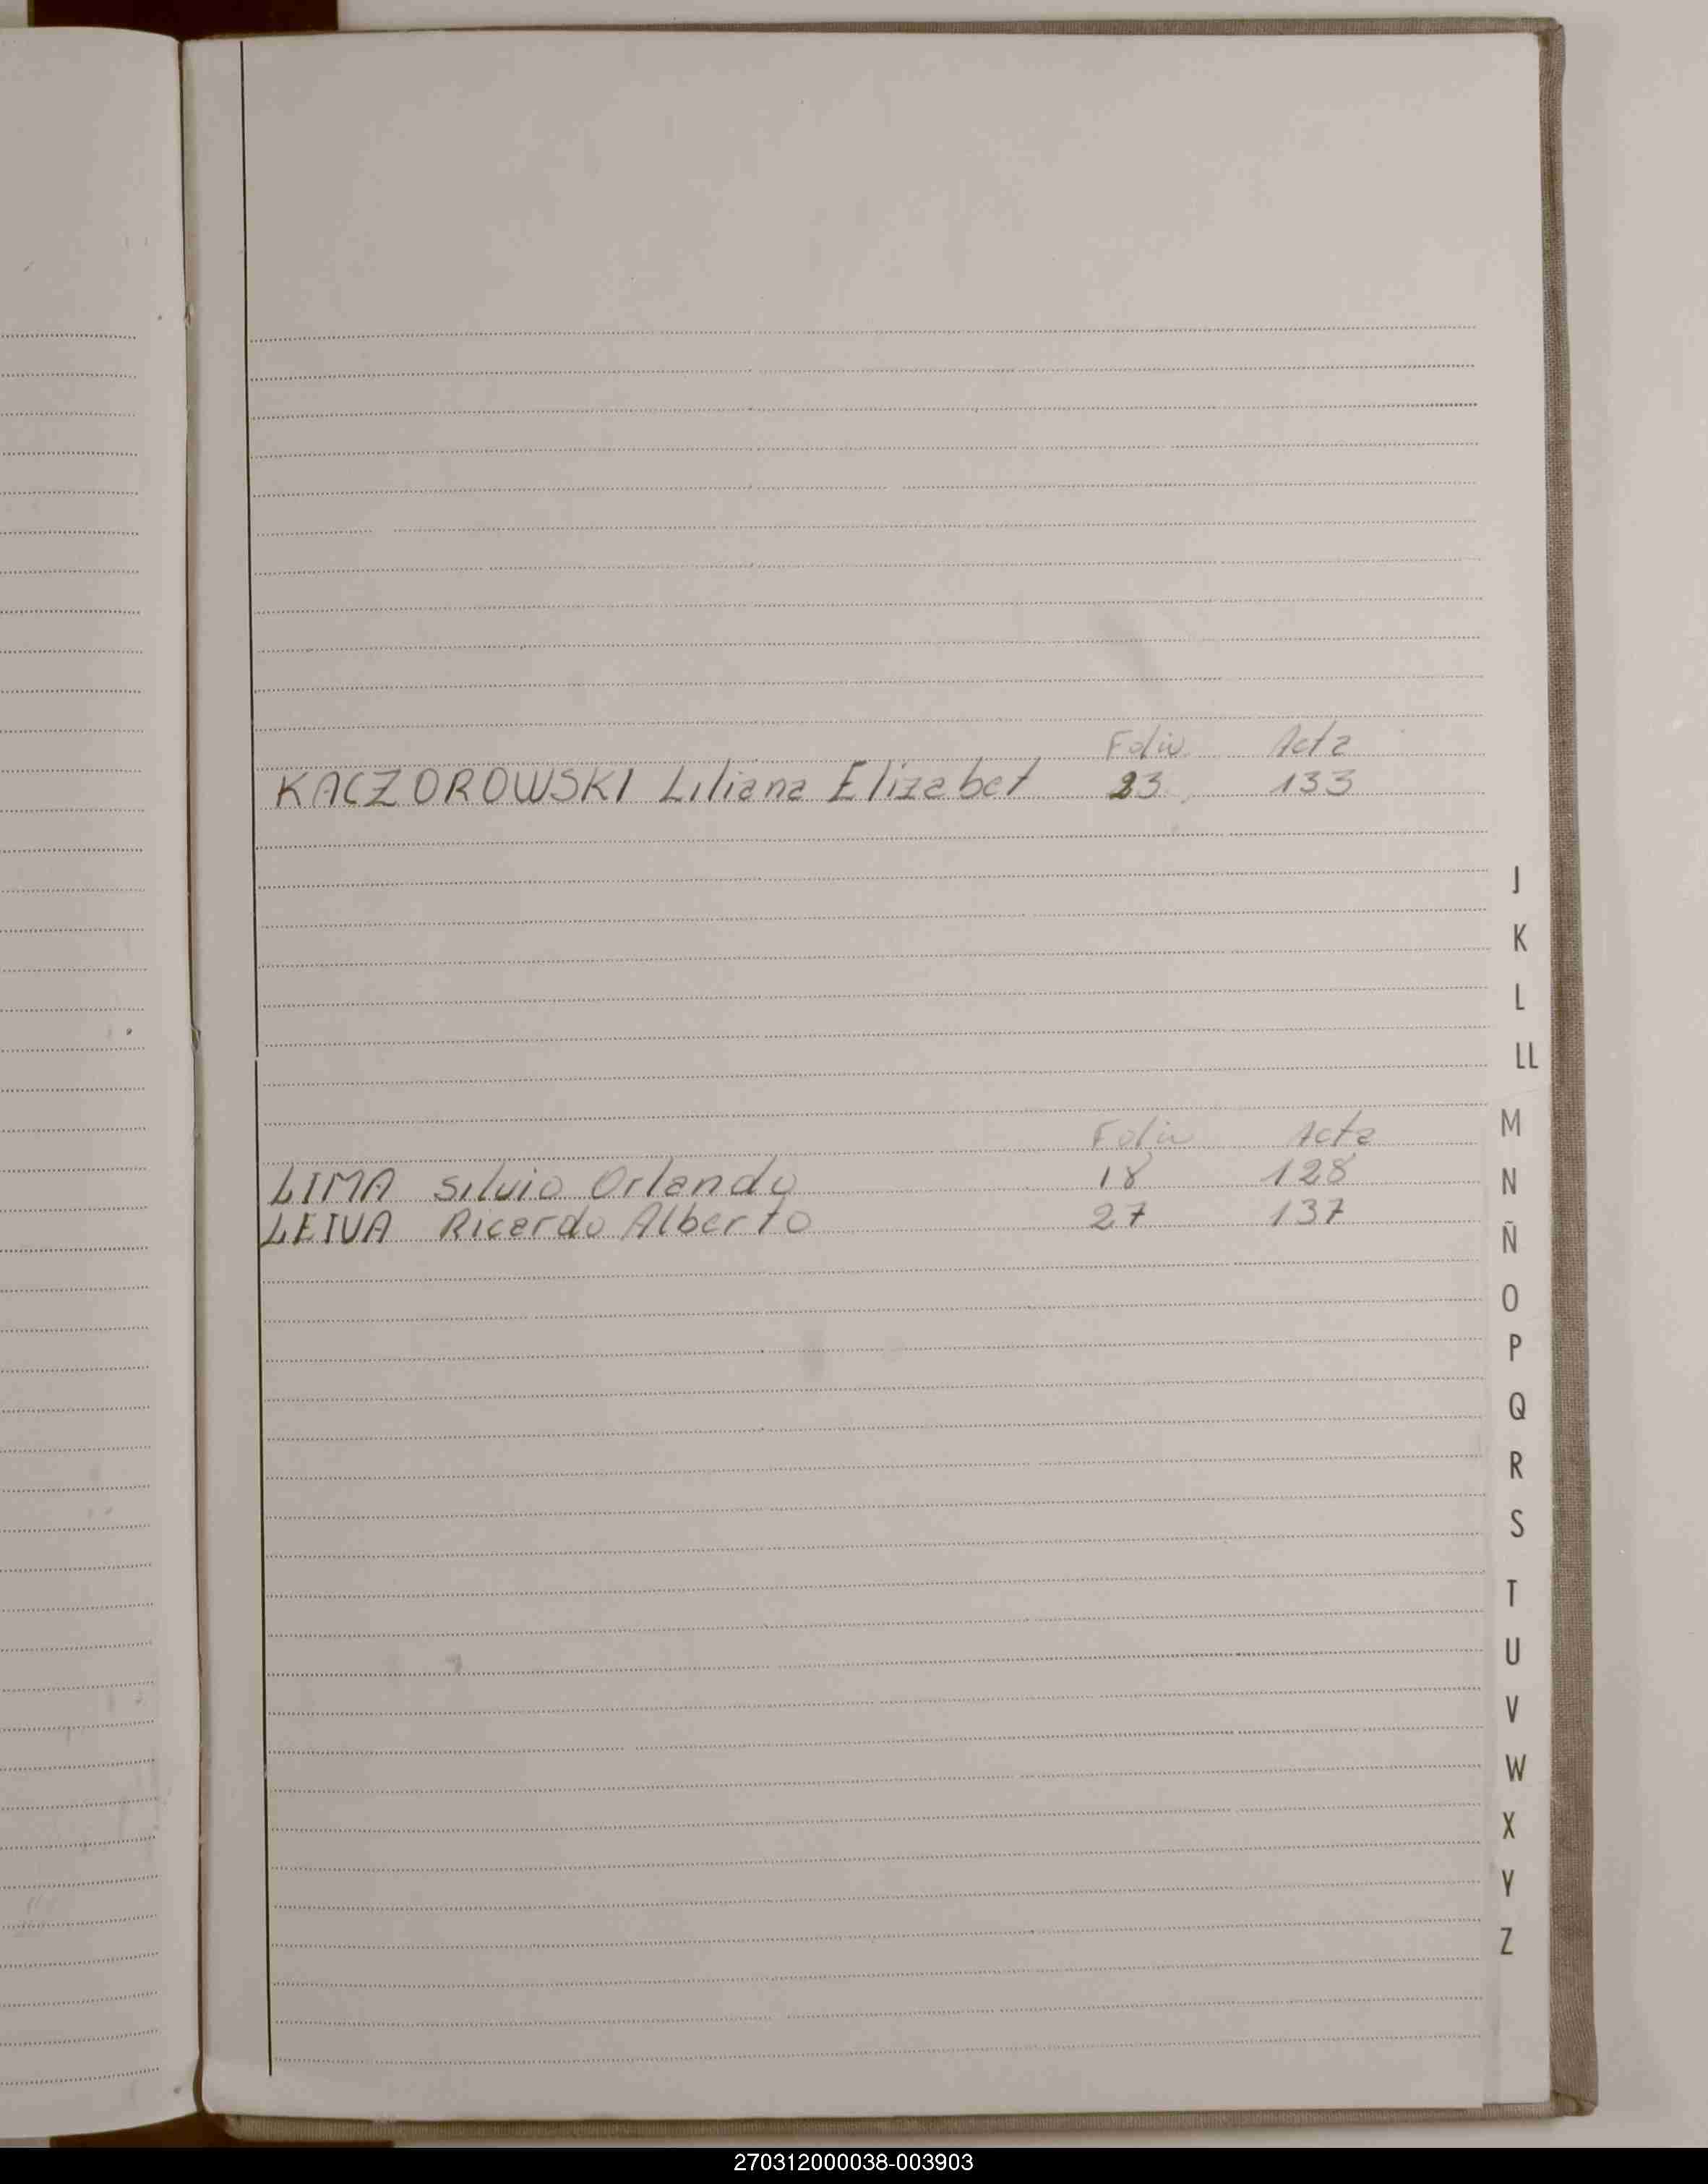 Folio Acta
KACZOROWSKI Liliana Elizabet 23 133
J
K
L
LL
Folio Acta
M
LIMA Silvio Orlando 18 128
N
LEIVA Ricardo Alberto 27 137
Ñ
O
P
Q
R
S
T
U
V
W
X
Y
Z
270312000038-003903